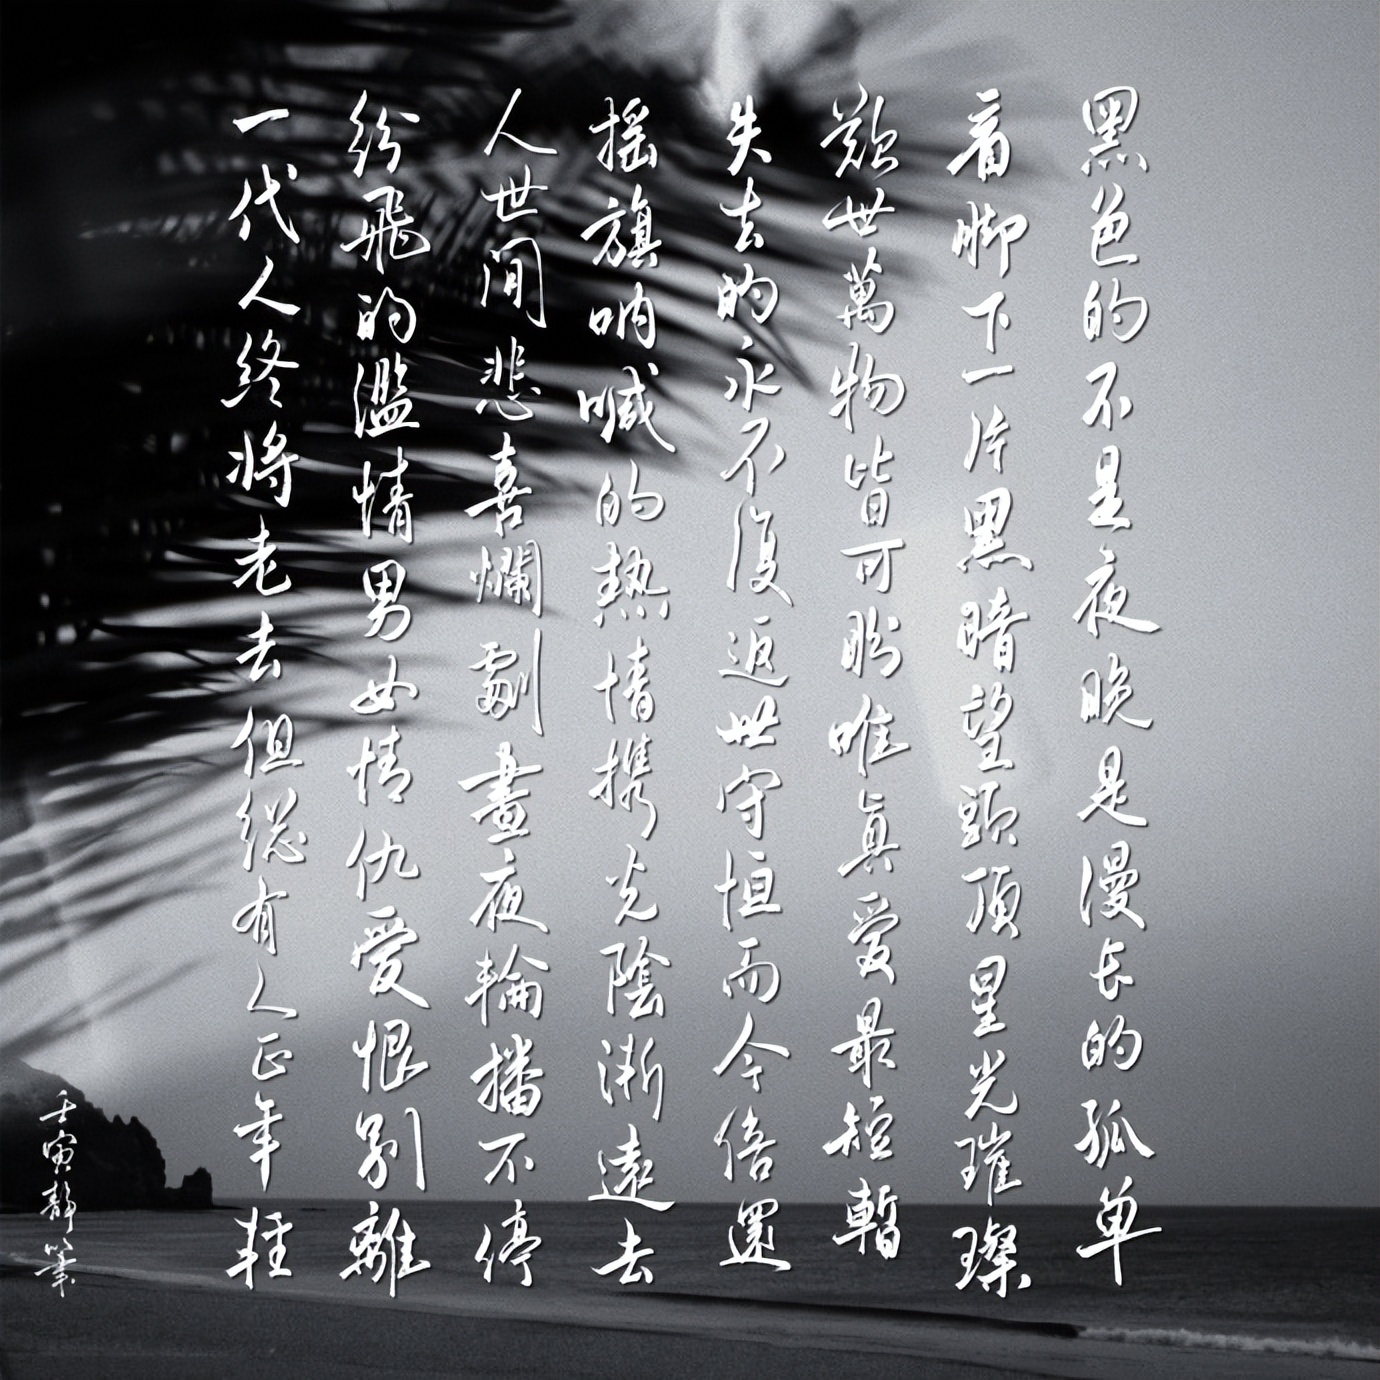 黑色的不是夜晚是漫长的孤单
看脚下一片黑暗望頭頂星光璀璨
歎世萬物皆可盼唯真爱最短暫
失去的永不復返世守恒而今倍還
摇旗呐喊的热情携光陰漸遠去
人世间悲喜爛劇晝夜輪播不停
纷飛的濫情男女情仇愛恨别離
一代人终将老去但総有人正年轻
壬寅静筆